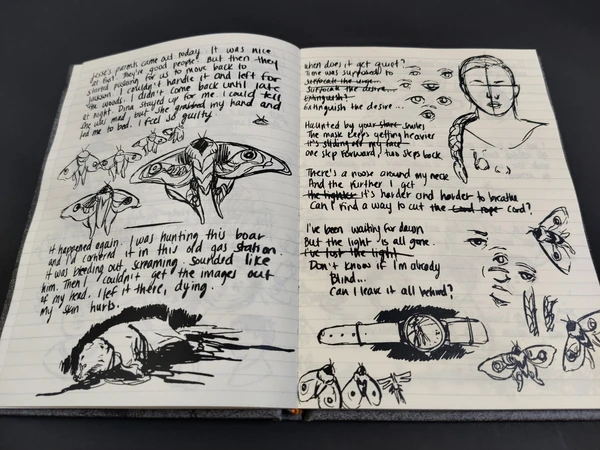 Jesse's parents came out today. It was nice
at first. They're good people. But then they
started pushing for us to move back to
Jackson. I couldn't handle it and left for
the woods. I didn't come back until late
at night. Dina stayed up for me. I could tell
she was mad but she grabbed my hand and
led me to bed. I feel so guilty
It happened again. I was hunting this boar
and I'd cornered it in this old gas station.
It was bleeding out, screaming. Sounded like
him. Then I couldn't get the images out
of my head. I left it there, dying.
My skin hurts.
when does it get quiet?
Time was supposed to
suffocate the urge...
suffocate the desire...
Extinguish?
Extinguish the desire...
Haunted by your stare smiles
The mask keeps getting heavier
it's sliding off my face
one step forward, two steps back
There's a noose around my neck
And the further I get
the tighter it's harder and harder to breathe
Can I find a way to cut the cord rope cord?
I've been waiting for dawn
But the light is all gone.
I've lost the light
Don't know if I'm already
Blind...
Can I leave it all behind?